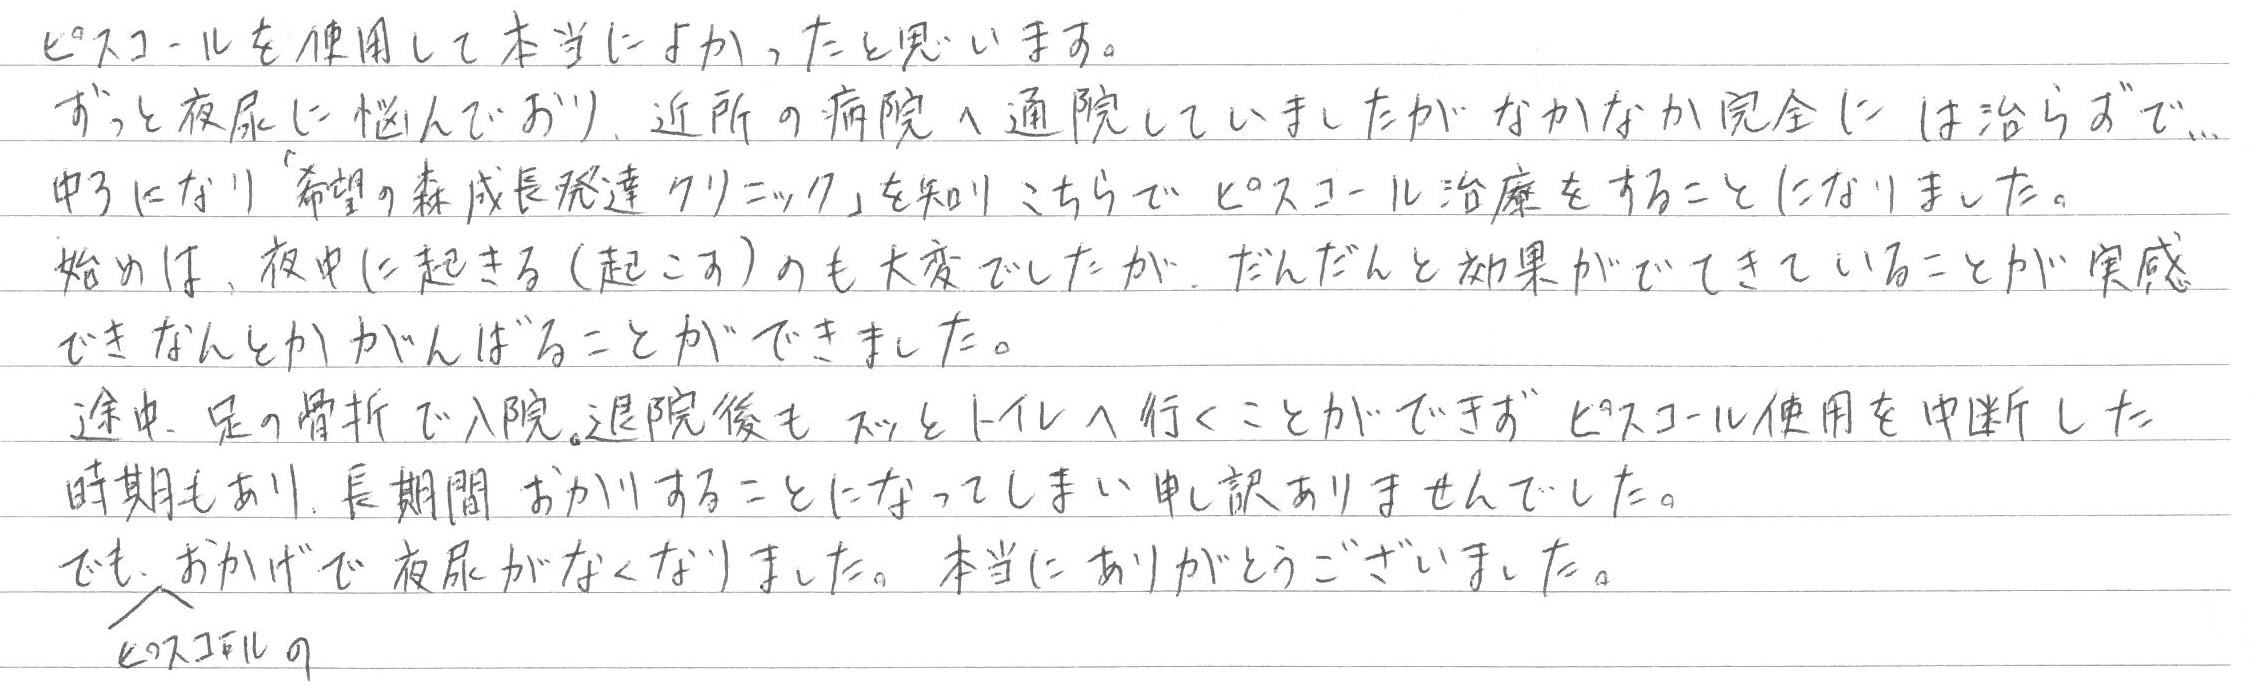 ピスコールを使用して本当によかったと思います。
ずっと夜尿に悩んでおり、近所の病院へ通院していましたがなかなか完全には治らずで…
中3になり「希望の森成長発達クリニック」を知りこちらでピスコール治療をすることになりました。
始めは、夜中に起きる(起こす)のも大変でしたが、だんだんと効果がでてきていることが実感
できなんとかがんばることができました。
途中、足の骨折で入院。退院後もズッとトイレへ行くことができずピスコール使用を中断した
時期もあり、長期間おかりすることになってしまい申し訳ありませんでした。
でも、おかげで夜尿がなくなりました。本当にありがとうございました。
ピスコールの